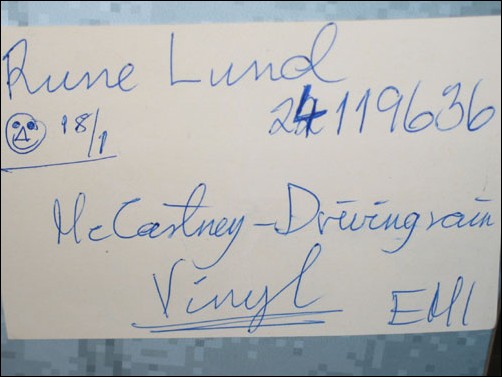 Rune Lund
24119636
18/1
McCartney-Drivingrain
Vinyl
EMI